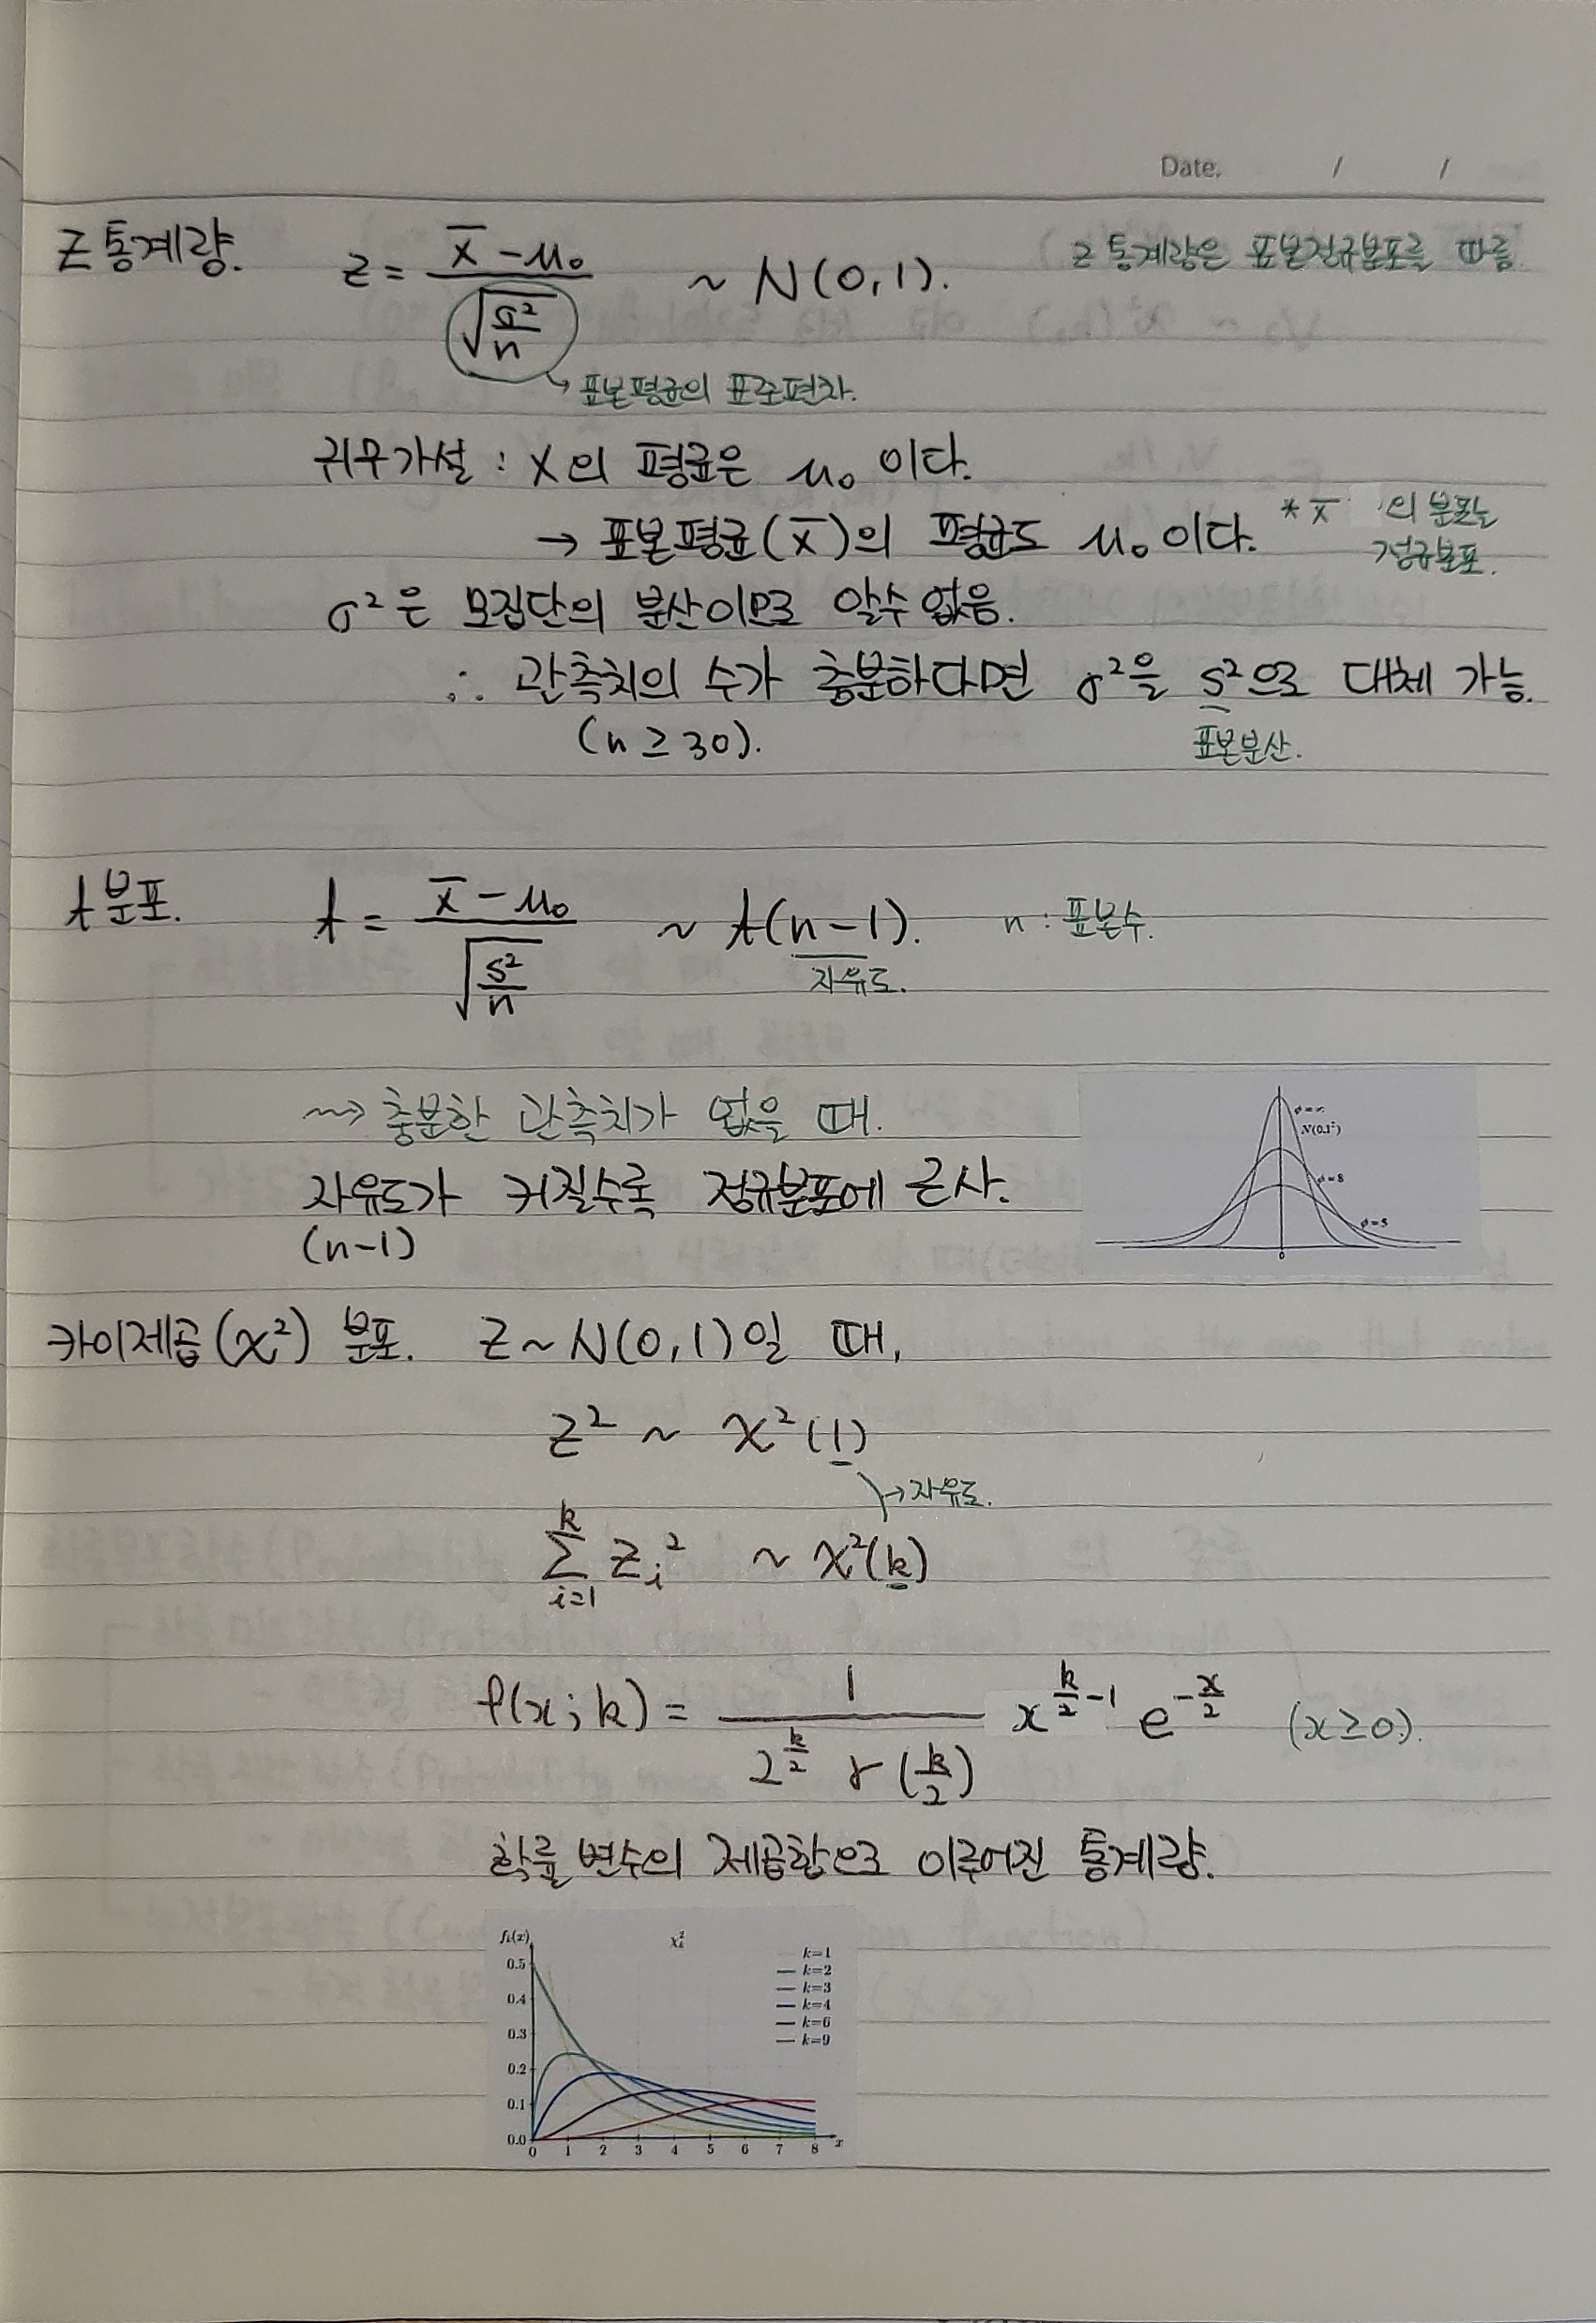 Date. / /
Z 통계량. z = (x̄ - μ₀) / √(σ²/n) ~ N(0,1). z 통계량은 표본정규분포를 따름
↳ 표본평균의 표준편차.
귀무가설 : X의 평균은 μ₀ 이다.
→ 표본평균(x̄)의 평균도 μ₀ 이다. * x̄ 의 분포는 정규분포.
σ²은 모집단의 분산이므로 알수 없음.
∴ 관측치의 수가 충분하다면 σ²을 s²으로 대체 가능.
(n ≥ 30). 표본분산.
t 분포. t = (x̄ - μ₀) / √(s²/n) ~ t(n-1). n : 표본수.
자유도.
⇝ 충분한 관측치가 없을 때.
자유도가 커질수록 정규분포에 근사.
(n-1)
N(0,1²)
ϕ=8
ϕ=5
0
카이제곱(χ²) 분포. Z ~ N(0,1)일 때,
Z² ~ χ²(1)
→ 자유도.
∑_{i=1}^{k} Z_i² ~ χ²(k)
f(x;k) = 1 / (2^{k/2} γ(k/2)) x^{k/2 - 1} e^{-x/2} (x≥0).
확률 변수의 제곱합으로 이루어진 통계량.
fₖ(x) χ²ₖ
k=1
k=2
k=3
k=4
k=6
k=9
0.5
0.4
0.3
0.2
0.1
0.0
0 1 2 3 4 5 6 7 8 x